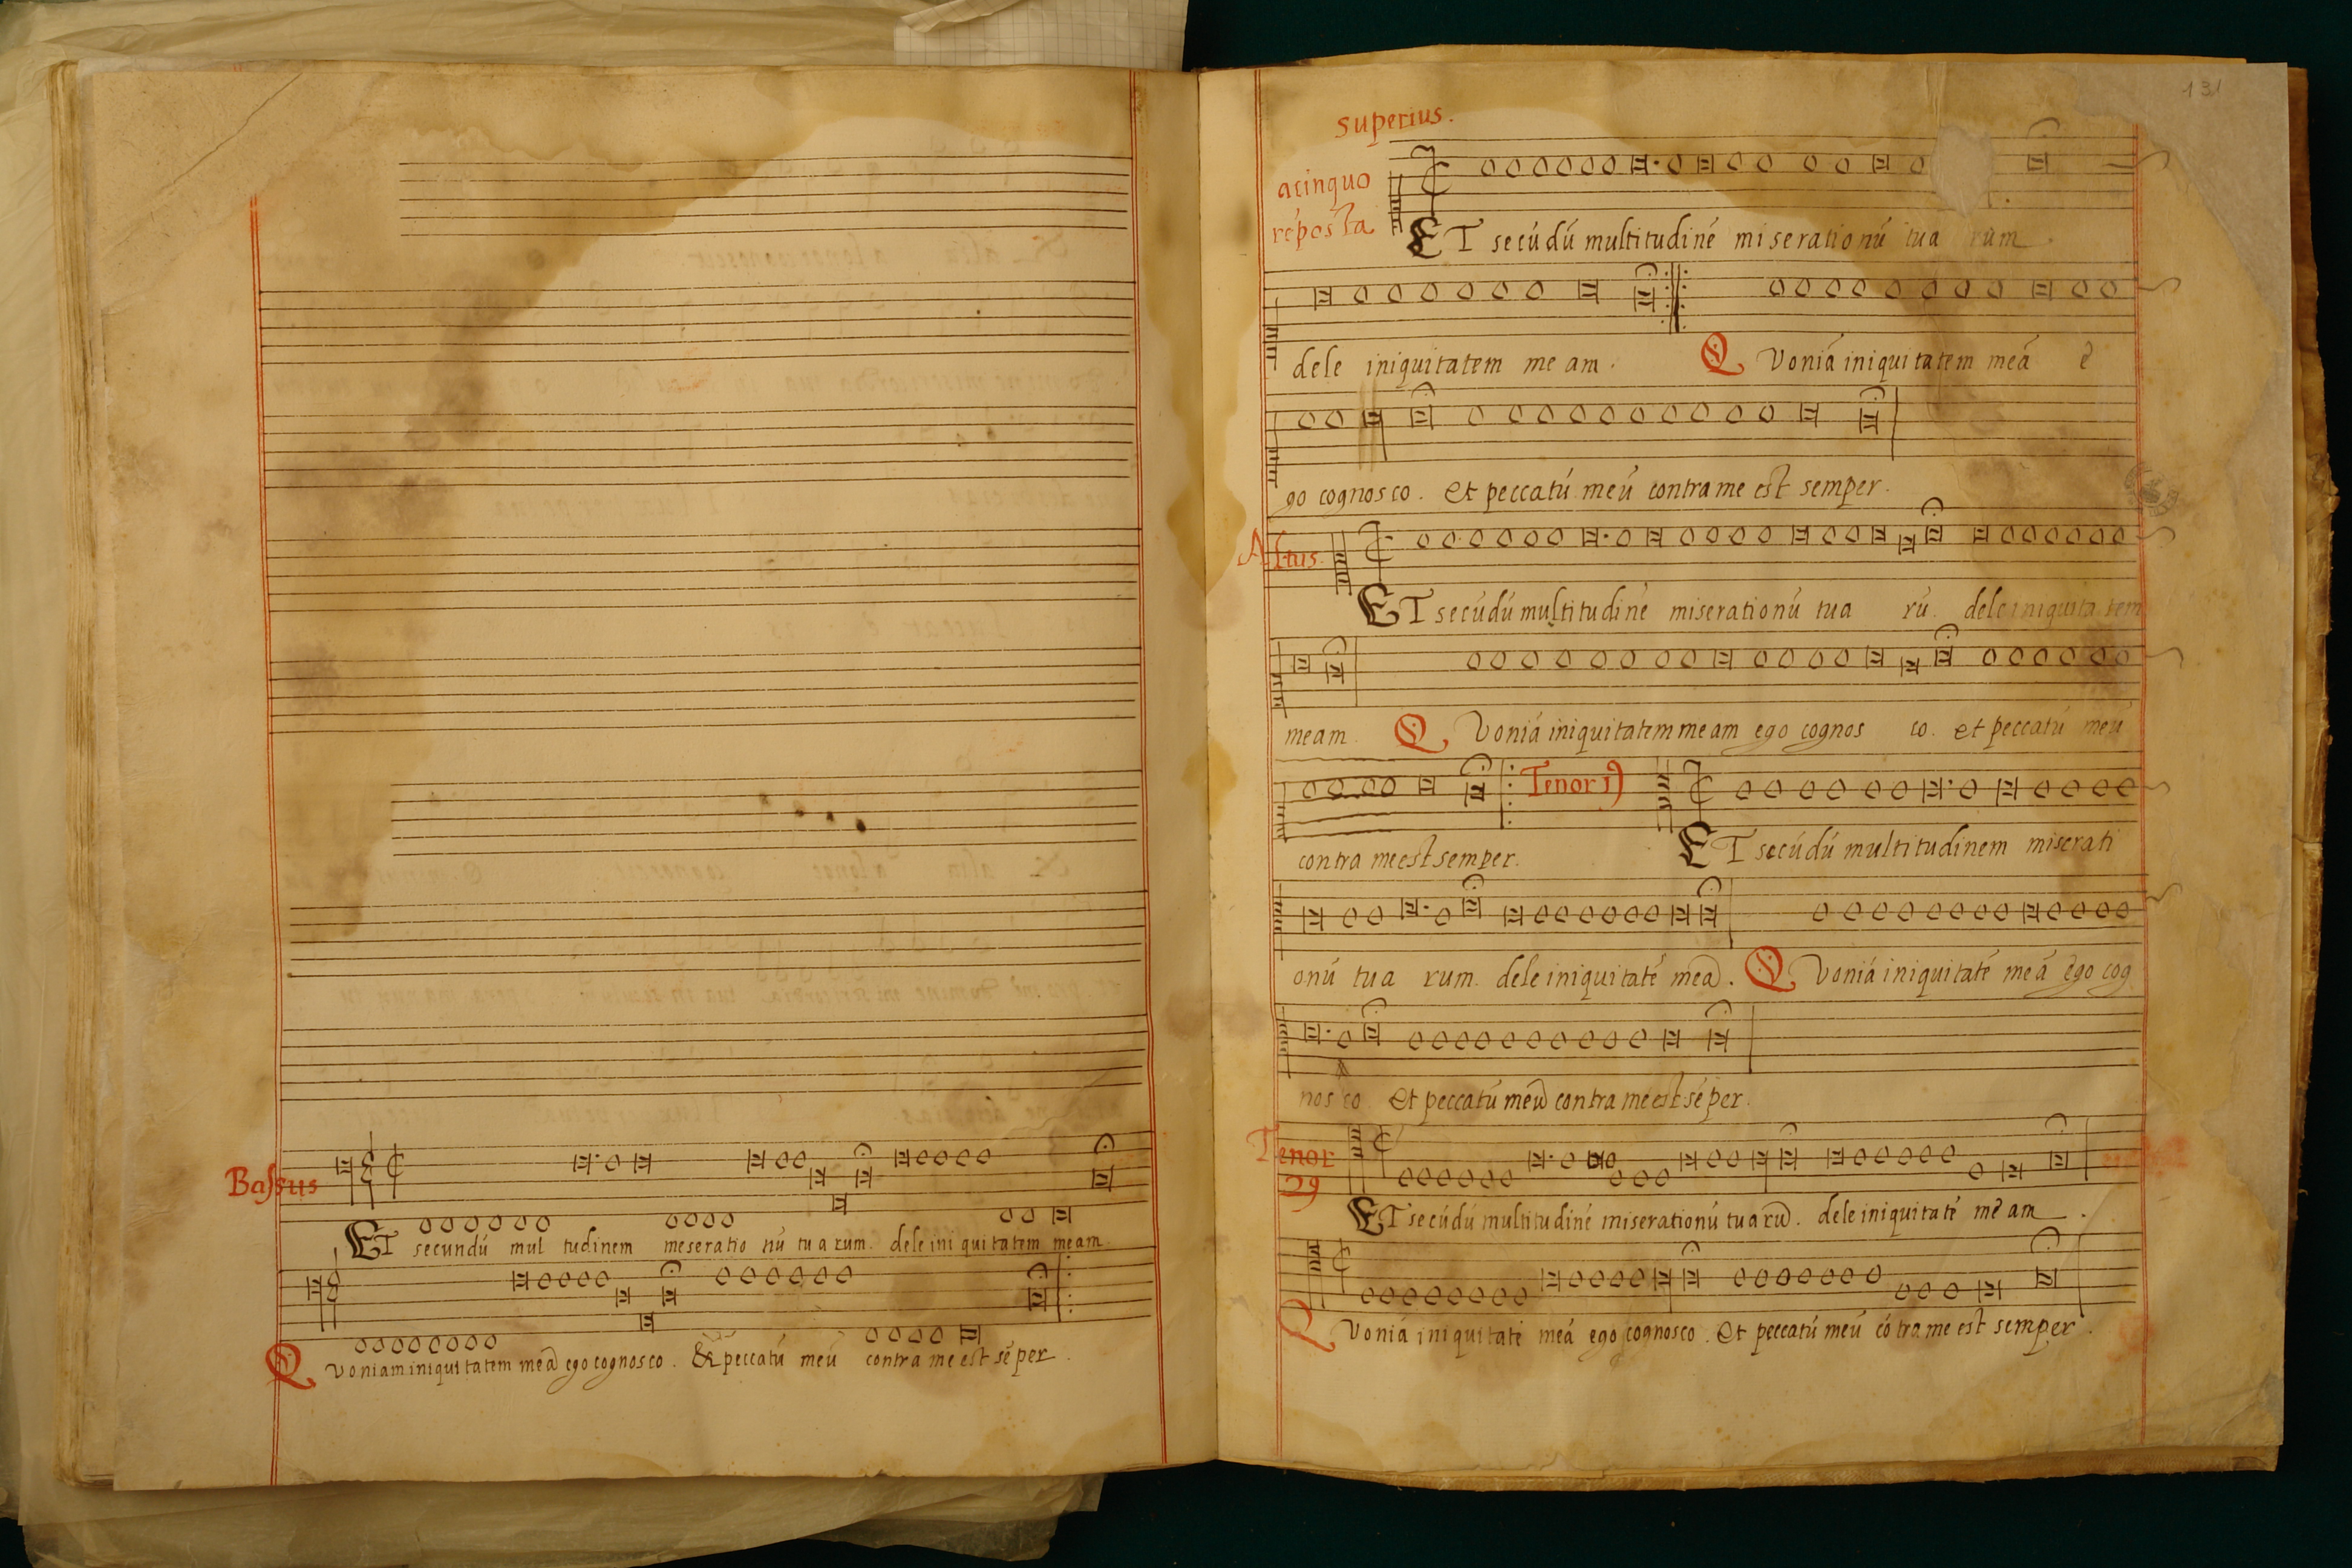 Bassus
ET secundú mul tudinem meseratio nú tu a rum. dele ini qui tatem meam
Q voniam iniqui tatem meã ego cognosco. & peccatú meú contra me est sẽ per.
131
superius.
acinquo
réposta
ET secúdú multitudiné miserationú tua rum.
dele iniquitatem me am. Q voniá iniquitatem meá e
go cognosco. et peccatú meú contra me est semper.
Altus.
ET secúdú multitudiné miserationú tua rú. dele iniquita tem
meam. Q voniá iniquitatem meam ego cognos co. et peccatú meú
Tenor 19
contra me est semper. ET secúdú multitudinem miserati
onú tua rum. dele iniquitaté meã. Q voniá iniquitaté meá ego cog
nos co. et peccatú meũ contra me est sé per.
Tenor
29
ET secúdú multitudiné miserationú tua rũ. dele iniquitaté me am.
Q voniá iniquitaté meá ego cognosco. et peccatú meú có tra me est semper.